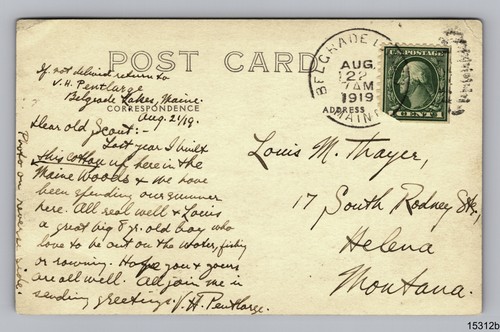 POST CARD
If not delivered return to
V. H. Pentlarge
Belgrade Lakes, Maine.
CORRESPONDENCE
Aug. 21/19.
Dear old Scout:-
Last year I built
this cottage up here in the
Maine Woods & we have
been spending our summer
here. All real well & Louis
a great big 8 yr. old boy who
love to be out on the water, fishing
or rowing. Hope you & yours
are all well. All join me in
sending greetings. V. H. Pentlarge.
Photo on reverse side.
BELGRADE
AUG
22
7AM
1919
MAINE
U.S. POSTAGE
1 CENT 1
ADDRESS
Louis M. Thayer,
17 South Rodney St.,
Helena
Montana.
15312b